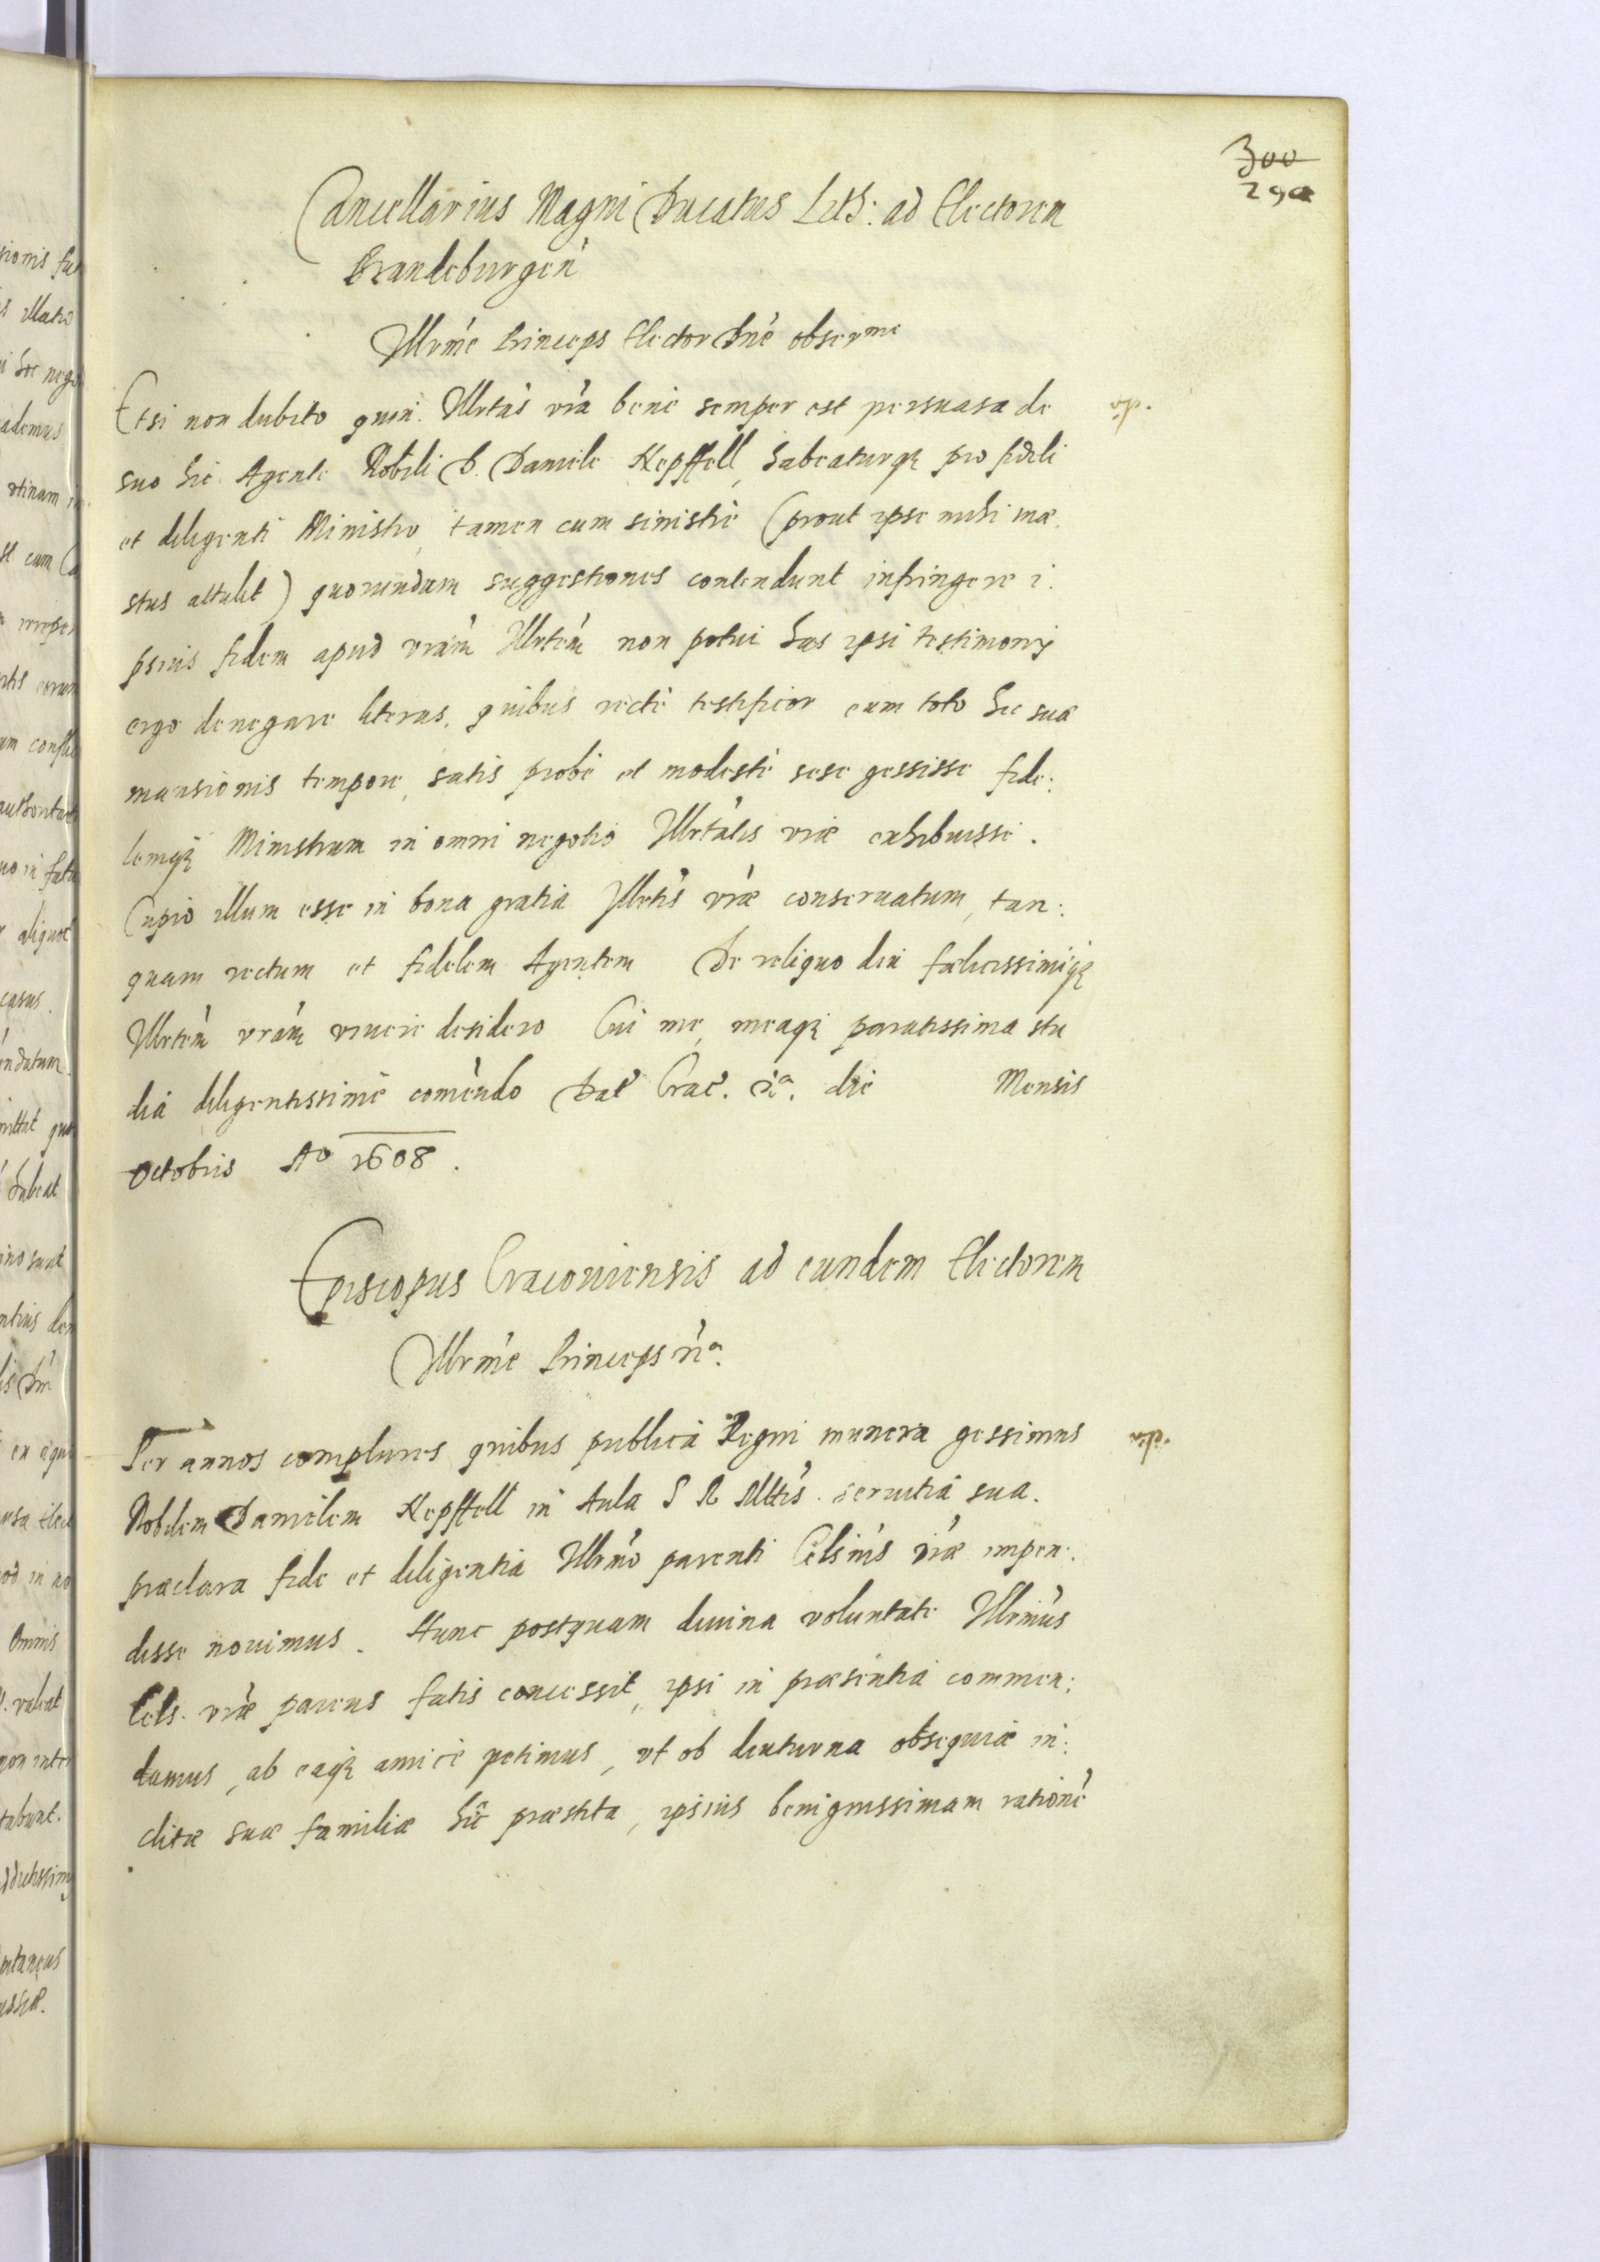 300
290
Cancellarius Magni Ducatus Lith: ad Electorem
Brandeburgen̄
Illrm̄e Princeps Elector Dn̄e obserme
Etsi non dubito quin Illrtas vr̄a bene semper est persuasa de
suo hic Agente Nobili D. Daniele Kepffell, habeaturq̨ pro fideli
et diligenti Ministro, tamen cum sinistrè (prout ipse mihi mæ
stus attulit) quorundam suggestiones contendunt infringere i:
psius fidem apud vrām Illrtēm non potui has ipsi testimonij
ergo denegare literas, quibus rectè testificor eum toto hic suæ
mansionis tempore, satis probè et modestè sese gessisse fide:
lemq̨ Ministrum in omni negotio Illrtātis vr̄æ exhibuisse.
Cupio illum esse in bona gratia Illrtīs vr̄æ conseruatum, tan:
quam rectum et fidelem Agentem De reliquo diu fælicissimèq̨
Illrtēm vrām viuere desidero Cui me, meaq̨ paratissima stu
dia diligentissimè comēndo Dat Crac. die Mensis
Octobris Ao 1608.
Episcopus Cracouiensis ad eundem Electorem
Illrm̄e Princeps
Per annos complures quibus publica Regni munera gessimus
Nobilem Danielem Kepffell in Aula S R Mttis seruitia sua
præclara fide et diligentia Illrmō parenti Celsnīs vr̄æ impen:
disse nouimus. Hunc postquam diuina voluntate Illrmūs
Cels. vr̄æ parens fatis concessit, ipsi in præsentia commen:
damus, ab eaq̨ amicè petimus, vt ob diuturna obsequia in:
clitæ suæ familiæ hîc præstita, ipsius benignissimam rationē